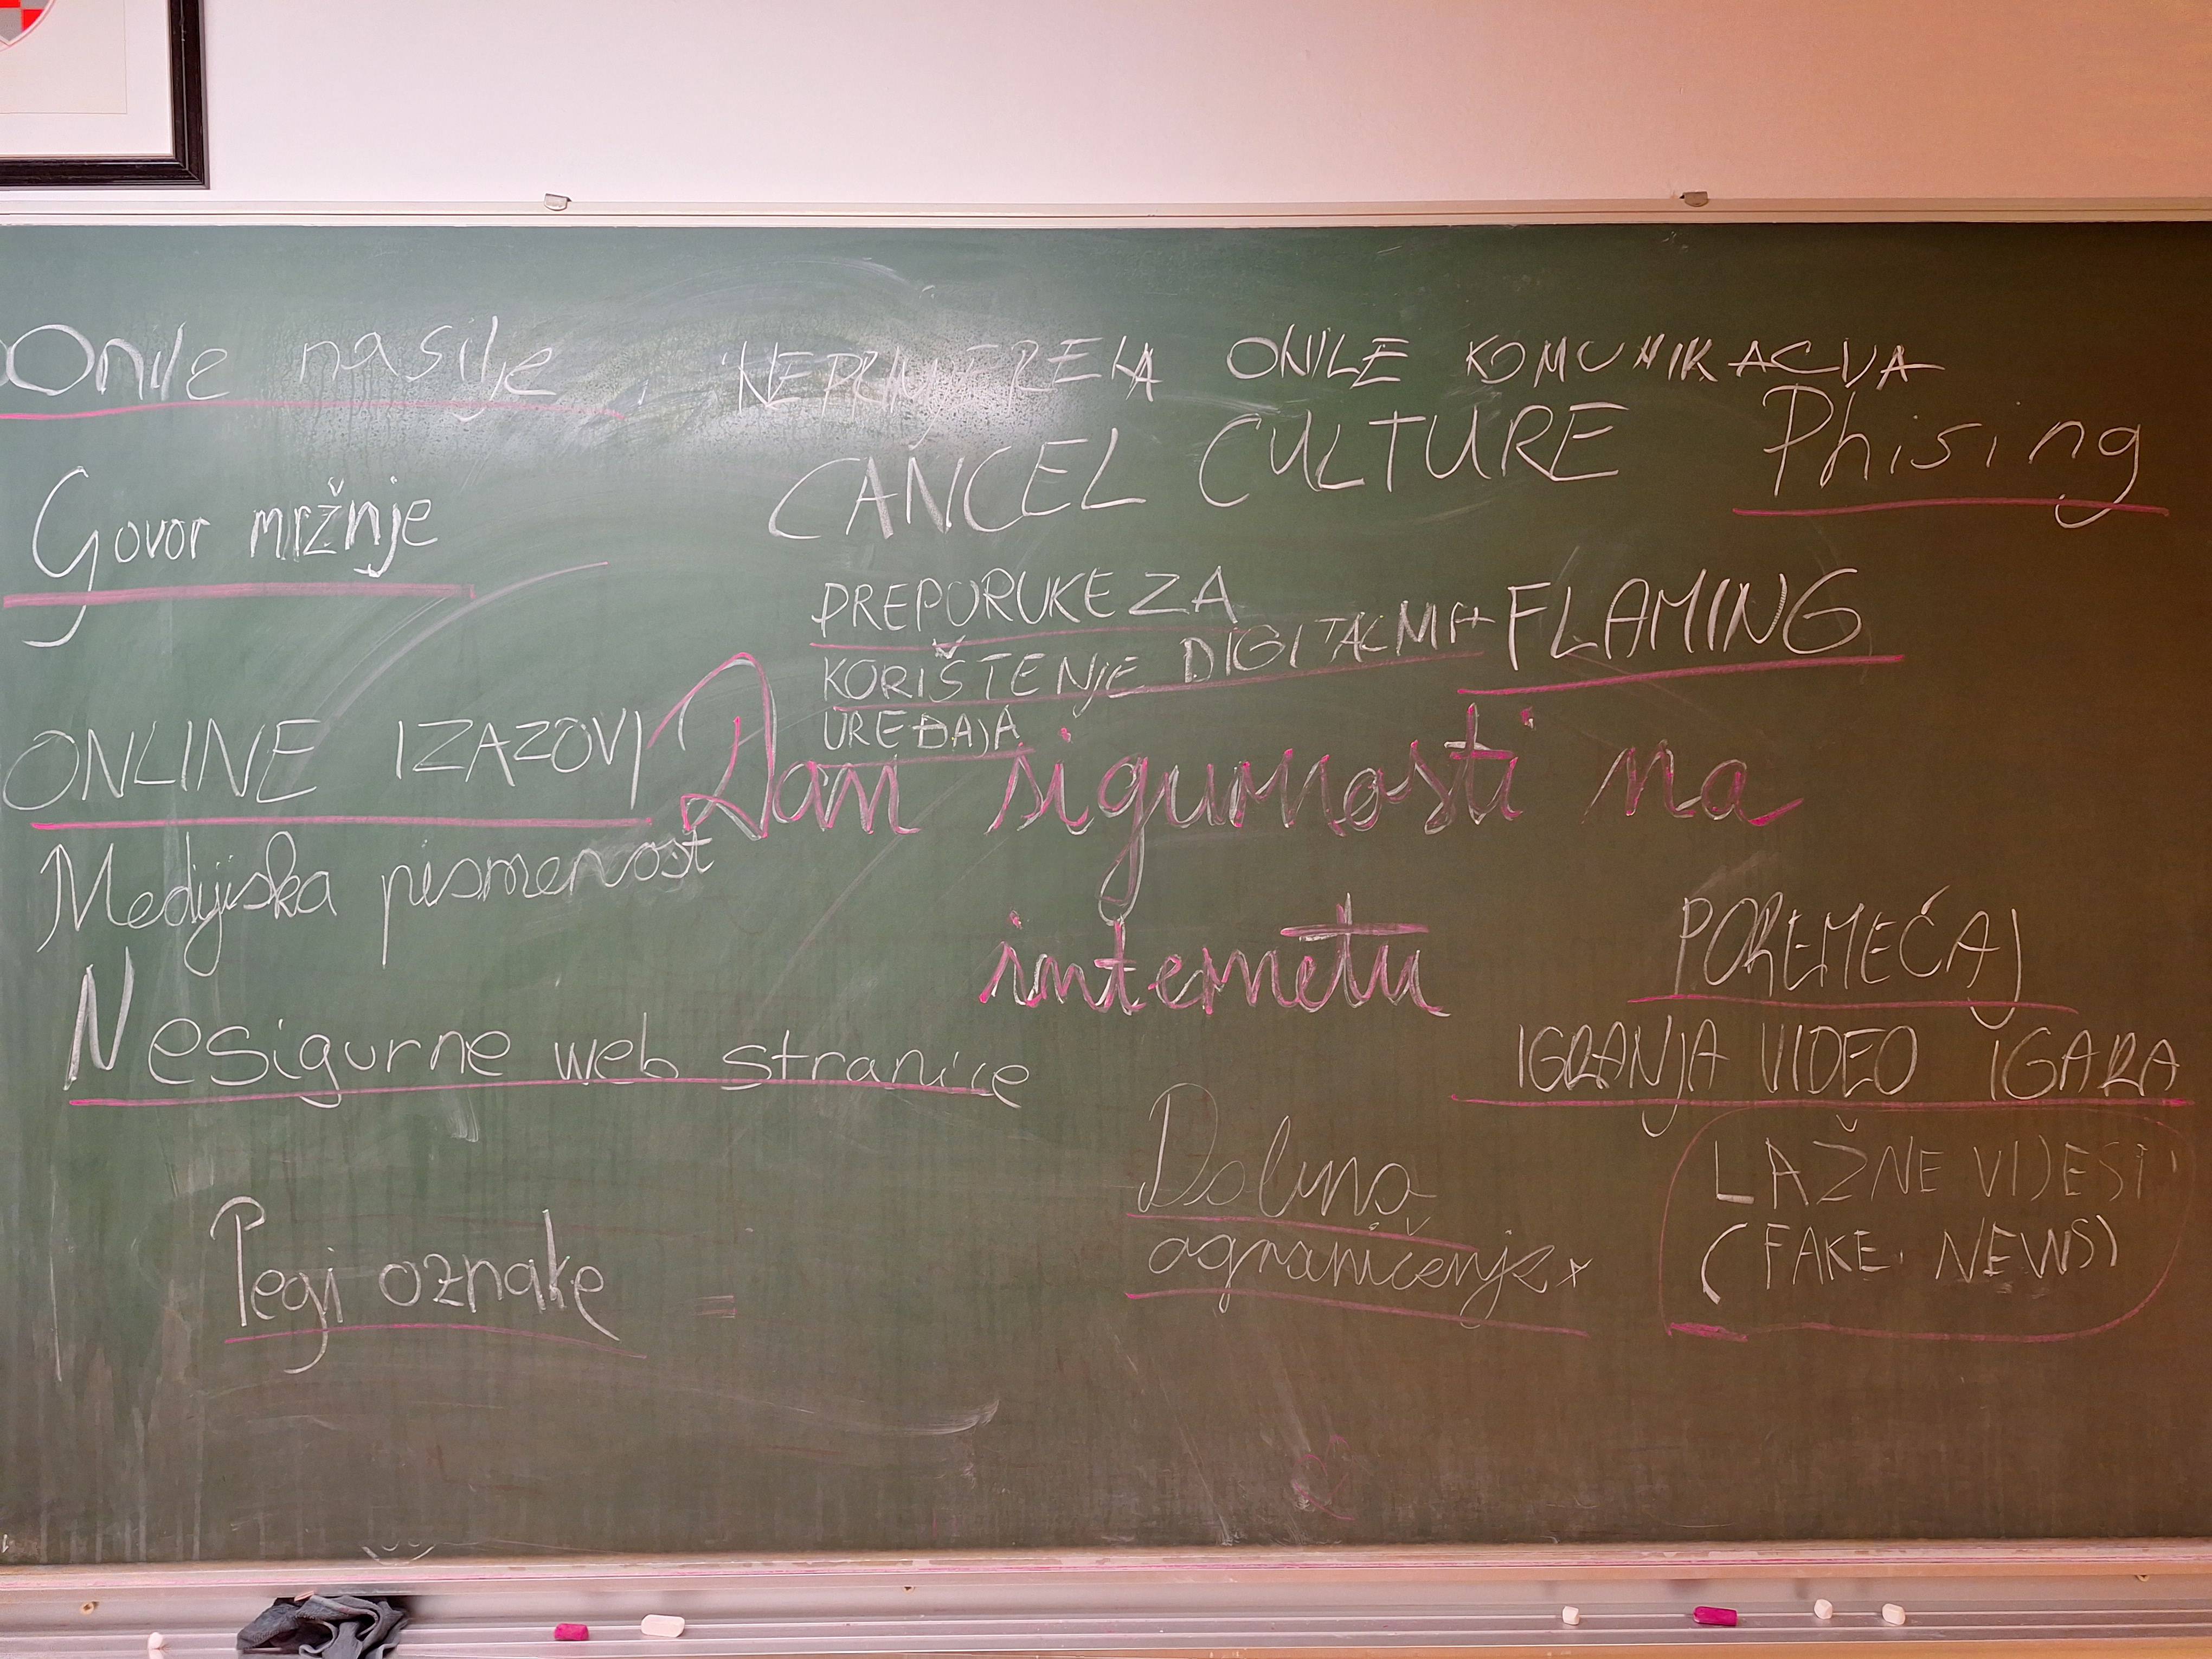 Onile nasilje
NEPRIMJERENA ONILE KOMUNIKACIJA
CANCEL CULTURE
Phising
Govor mržnje
PREPORUKE ZA
KORIŠTENJE
UREĐAJA
FLAMING
ONLINE IZAZOVI
Dan sigurnosti na
internetu
Medijska pismenost
Nesigurne web stranice
POREMEĆAJ
IGRANJA VIDEO IGARA
Dobna
ograničenja
LAŽNE VIJESTI
(FAKE NEWS)
Pegi oznake